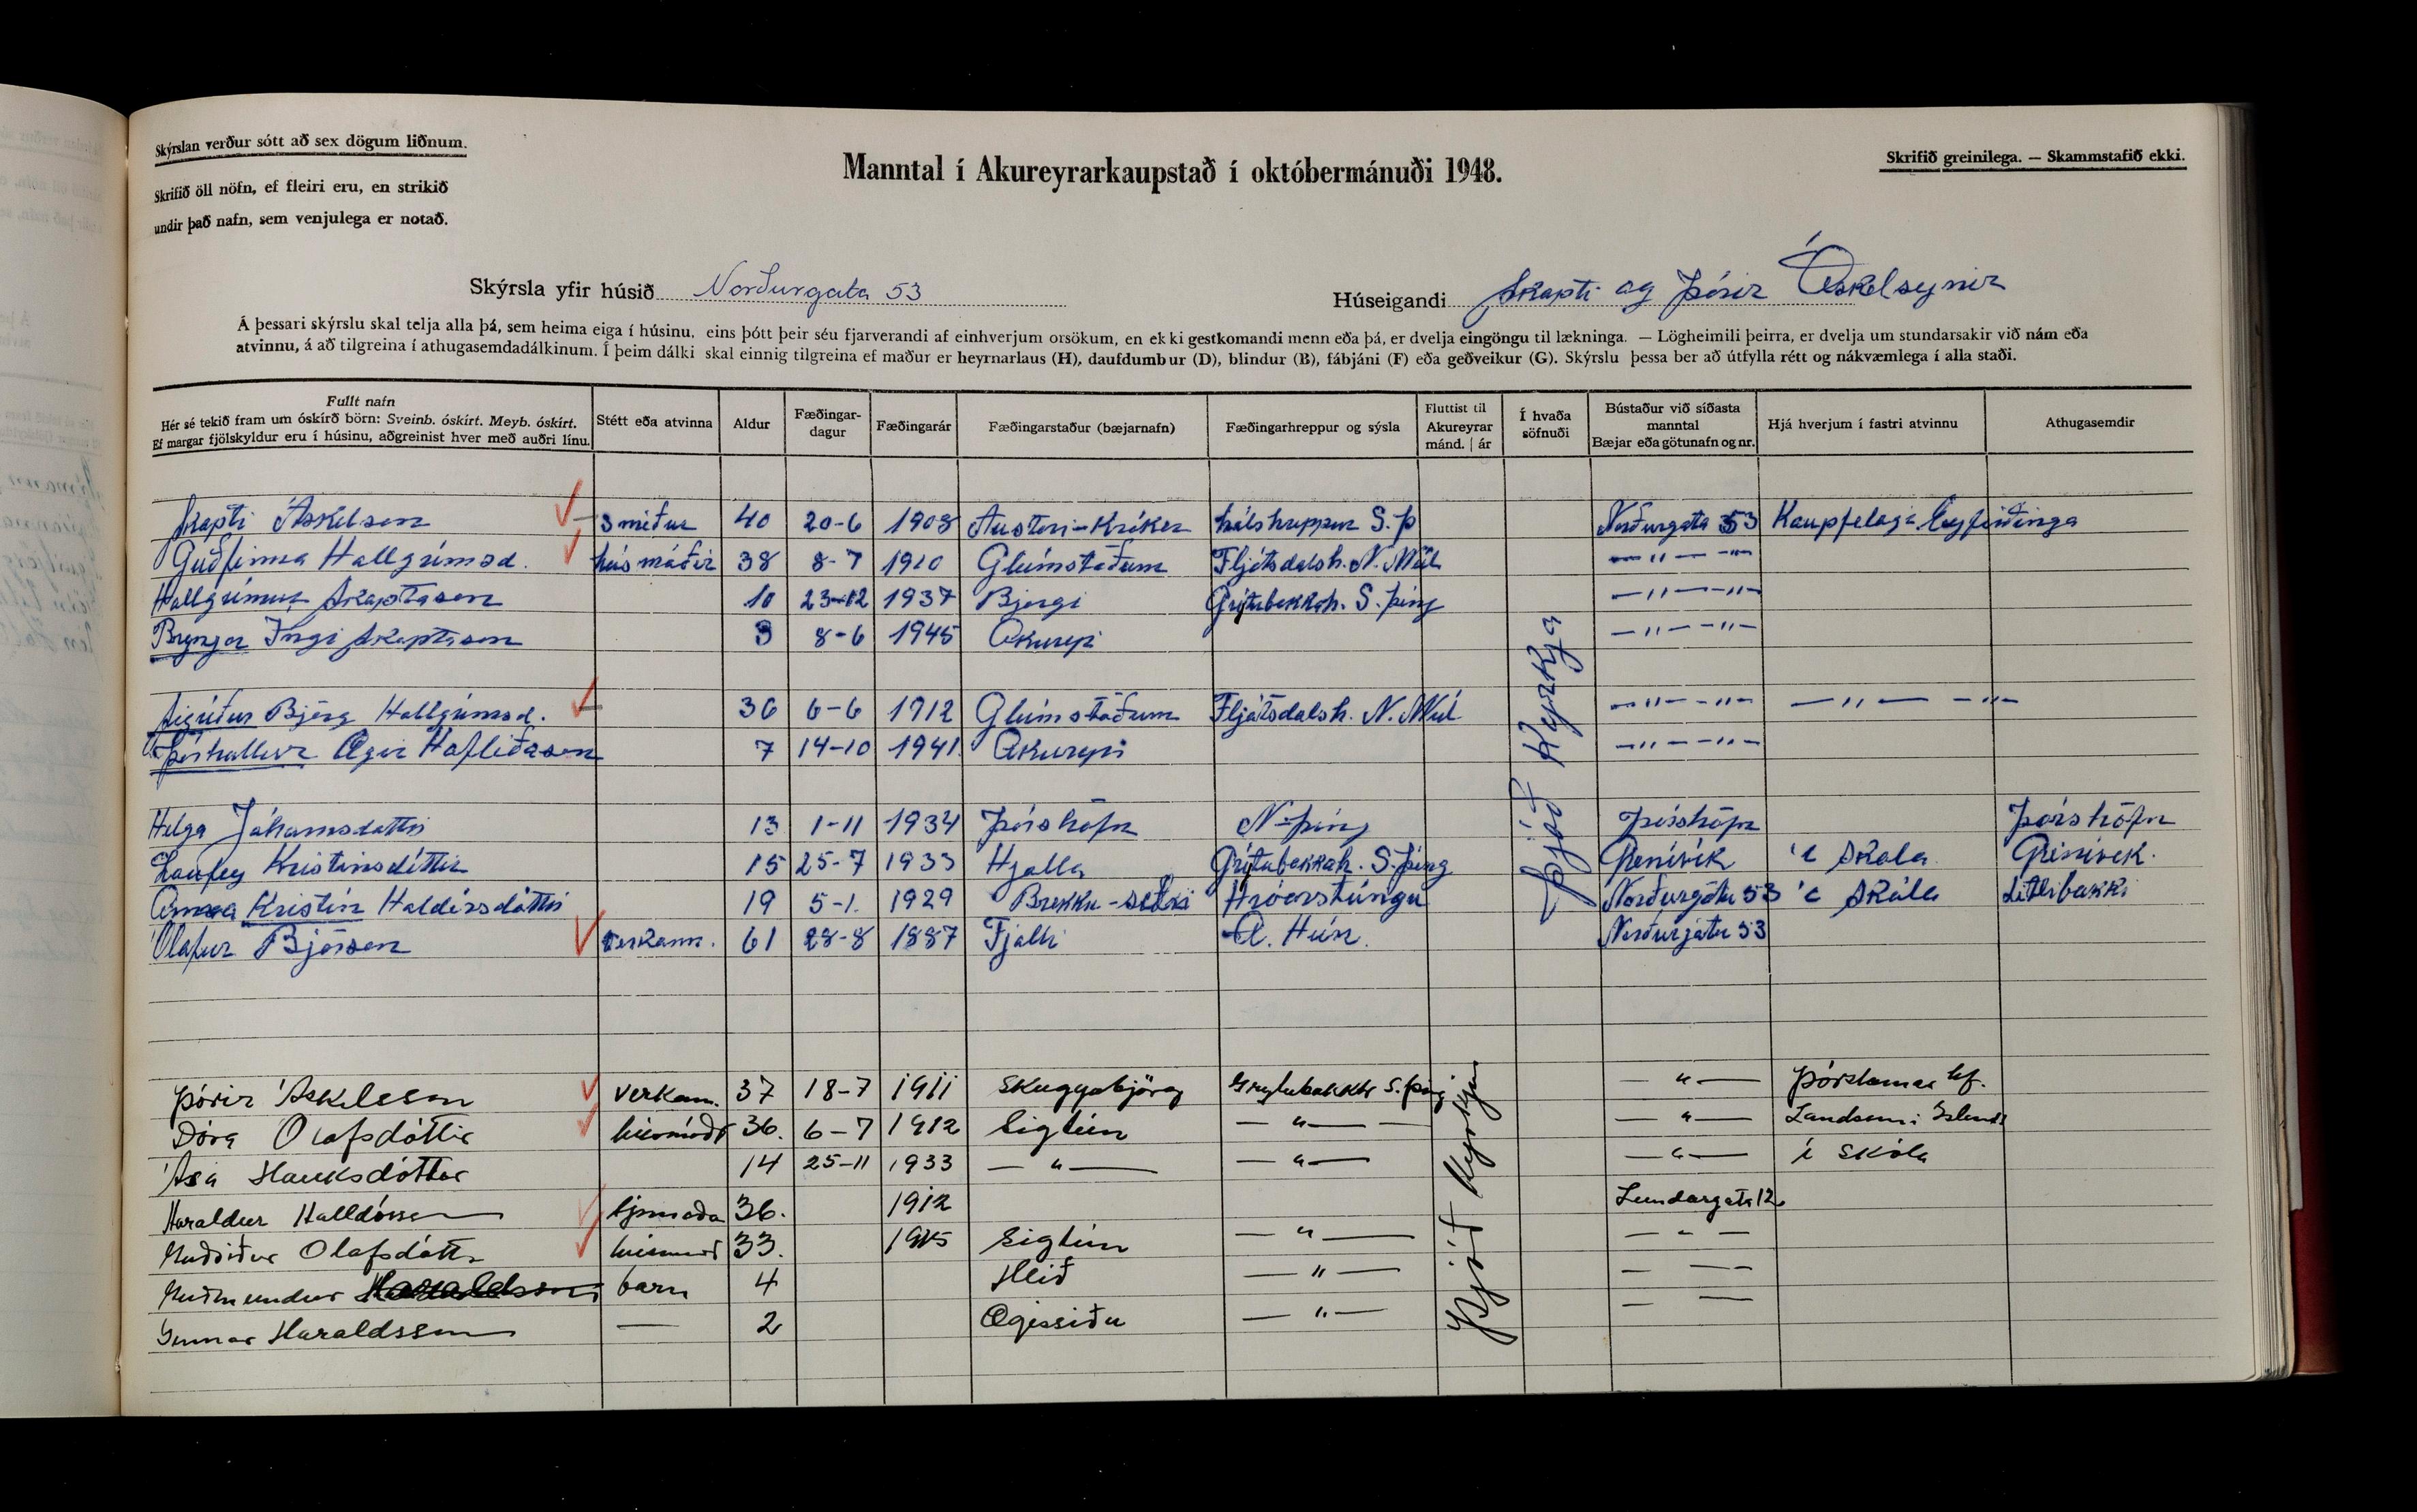 Skýrslan verður sótt að sex dögum liðnum.
Skrifið öll nöfn, ef fleiri eru, en strikið
undir það nafn, sem venjulega er notað.
Manntal í Akureyrarkaupstað í októbermánuði 1948.
Skrifið greinilega. — Skammstafið ekki.
Skýrsla yfir húsið Norðurgata 53
Húseigandi Skapti og Þórir Áskelsynir
Á þessari skýrslu skal telja alla þá, sem heima eiga í húsinu, eins þótt þeir séu fjarverandi af einhverjum orsökum, en ekki gestkomandi menn eða þá, er dvelja eingöngu til lækninga. — Lögheimili þeirra, er dvelja um stundarsakir við nám eða
atvinnu, á að tilgreina í athugasemdadálkinum. Í þeim dálki skal einnig tilgreina ef maður er heyrnarlaus (H), daufdumbur (D), blindur (B), fábjáni (F) eða geðveikur (G). Skýrslu þessa ber að útfylla rétt og nákvæmlega í alla staði.
Fullt nafn
Hér sé tekið fram um óskírð börn: Sveinb. óskírt. Meyb. óskírt.
Ef margar fjölskyldur eru í húsinu, aðgreinist hver með auðri línu.
Stétt eða atvinna
Aldur
Fæðingar-
dagur
Fæðingarár
Fæðingarstaður (bæjarnafn)
Fæðingarhreppur og sýsla
Fluttist til
Akureyrar
mánd. | ár
Í hvaða
söfnuði
Bústaður við síðasta
manntal
Bæjar eða götunafn og nr.
Hjá hverjum í fastri atvinnu
Athugasemdir
Skapti Áskelson smiður 40 20-6 1908 Austari-Krókar Hálshreppur S. Þ Norðurgata 53 Kaupfelagi Eyfirðinga
Guðfinna Hallgrímsd. húsmóðir 38 8-7 1910 Glúmstöðum Fljótsdalsh. N. Múl —"— —"—
Hallgrímur Skaptason 10 23-12 1937 Bjargi Grýtubakkah. S. Þing —"— —"—
Brynjar Ingi Skaptason 3 8-6 1945 Akureyri —"— —"—
Sigríður Björg Hallgrímsd. 36 6-6 1912 Glúmstöðum Fljótsdalsh. N. Múl —"— —"— —"— —"—
Þórhallur Ægir Hafliðason 7 14-10 1941 Akureyri —"— —"—
Helga Jóhannsdóttir 13 1-11 1934 Þórshöfn N-Þing Þórshöfn Þórshöfn
Laufey Kristinsdóttir 15 25-7 1933 Hjalla Grýtubakkah. S. Þing Grenivík í Skóla Grenivík.
Anna Kristín Haldórsdóttir 19 5-1. 1929 Brekku-seli Hróarstúngu Norðurgötu 53 í Skóla Litlibakki
Ólafur Björson verkam. 61 28-8 1887 Fjalli A. Hún. Norðurgötu 53
Þjóð Kyrkja
Þórir Áskelsson verkam. 37 18-7 1911 Skuggabjörg S. Þing —"— Þórshamar hf.
Dóra Olafsdóttir húsmóðir 36. 6-7 1912 Sigtún —"— —"— Landsími Íslands
Ása Hauksdóttir 14 25-11 1933 —"— —"— —"— í Skóla
Haraldur Halldórsson 36. 1912 Lundargata 12
Olafsdóttir 33. 1915 Sigtún —"— —"—
Guðmundur barn 4 Hlið —"— — —
Gunnar Haraldsson — 2 Ægissiðu —"— — —
Þjóð Kyrkjan